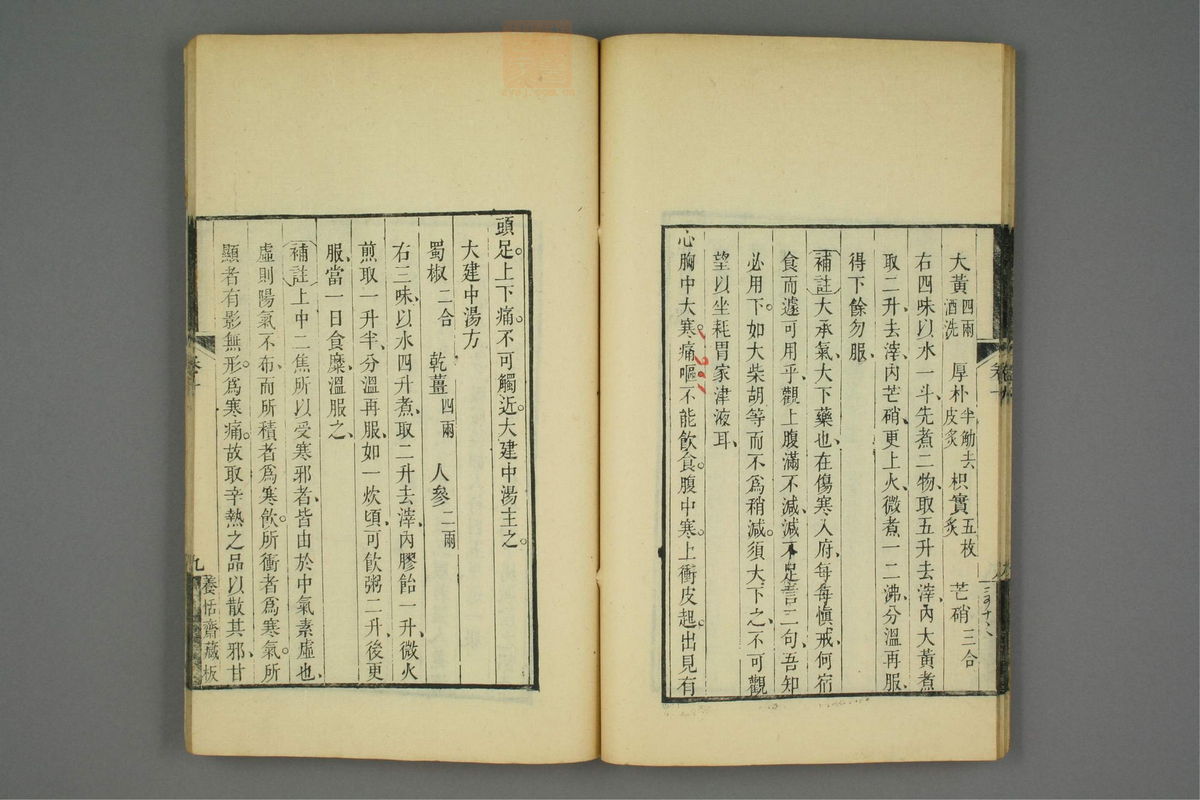 大黃四兩酒洗 厚朴半觔去皮炙 枳實五枚炙 芒硝三合
右四味以水一斗先煮二物取五升去滓內大黃煮
取二升去滓內芒硝更上火微煮一二沸分溫再服
得下餘勿服
補註大承氣大下藥也在傷寒入府每每慎戒何宿
食而遽可用乎觀上腹滿不減減不足言二句吾知
必用下。如大柴胡等而不爲稍減須大下之不可觀
望以坐耗胃家津液耳
心胸中大寒痛嘔不能飲食。腹中寒。上衝皮起。出見有
頭足。上下痛。不可觸近。大建中湯主之。
大建中湯方
蜀椒二合 乾薑四兩 人參二兩
右三味以水四升煮取二升去滓內膠飴一升微火
煎取一升半分溫再服如一炊頃可飲粥二升後更
服當一日食糜溫服之
補註上中二焦所以受寒邪者皆由於中氣素虛也
虛則陽氣不布而所積者爲寒飲。所衝者爲寒氣。所
顯者有影無形。爲寒痛。故取辛熱之品以散其邪甘
卷十
九
養恬齋藏板